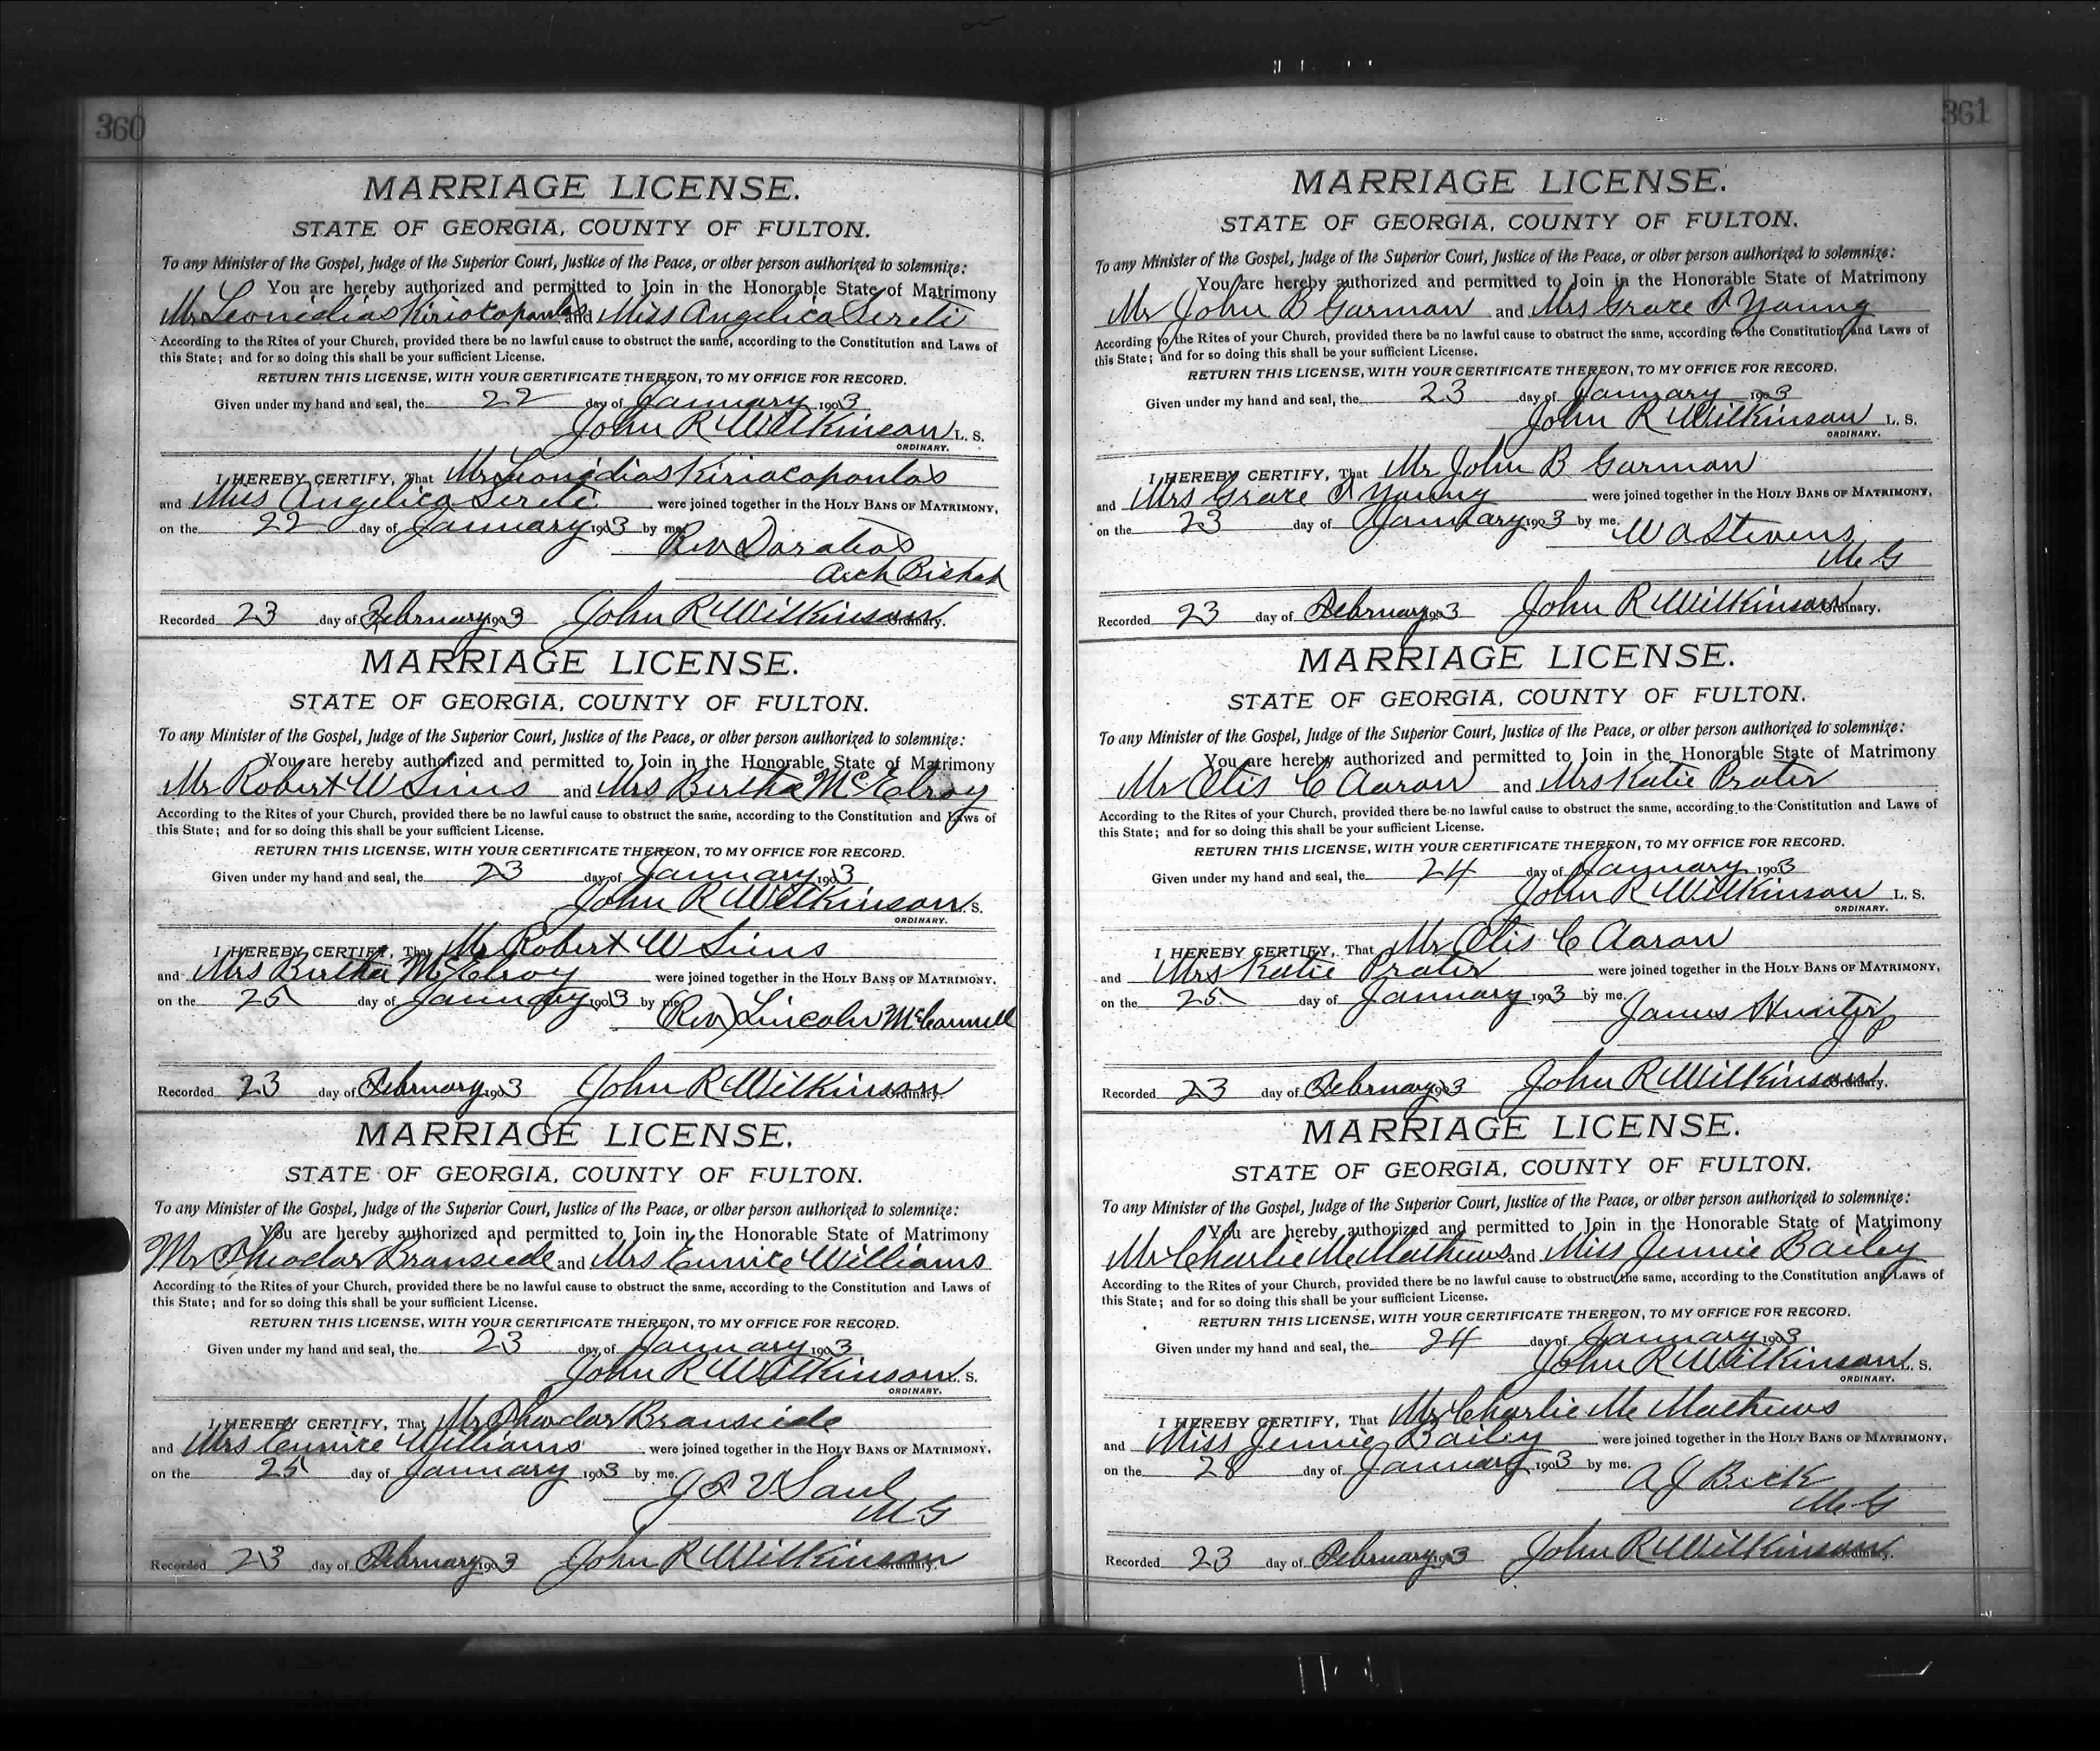 360
MARRIAGE LICENSE.
STATE OF GEORGIA, COUNTY OF FULTON.
To any Minister of the Gospel, Judge of the Superior Court, Justice of the Peace, or other person authorized to solemnize:
You are hereby authorized and permitted to Join in the Honorable State of Matrimony
Mr Leonidias Kiriocopoulos and Miss Angelica Sereti
According to the Rites of your Church, provided there be no lawful cause to obstruct the same, according to the Constitution and Laws of
this State; and for so doing this shall be your sufficient License.
RETURN THIS LICENSE, WITH YOUR CERTIFICATE THEREON, TO MY OFFICE FOR RECORD.
Given under my hand and seal, the 22 day of January 1903
John R Wilkinson L. S.
ORDINARY.
I HEREBY CERTIFY, That Mr Leonidias Kiriocopoulos
and Miss Angelica Sereti were joined together in the HOLY BANS OF MATRIMONY,
on the 22 day of January 1903 by me.
Rev Doratias
Arch Bishop
Recorded 23 day of February 1903 John R Wilkinson Ordinary.
MARRIAGE LICENSE.
STATE OF GEORGIA, COUNTY OF FULTON.
To any Minister of the Gospel, Judge of the Superior Court, Justice of the Peace, or other person authorized to solemnize:
You are hereby authorized and permitted to Join in the Honorable State of Matrimony
Mr Robert W Sims and Mrs Bertha McElroy
According to the Rites of your Church, provided there be no lawful cause to obstruct the same, according to the Constitution and Laws of
this State; and for so doing this shall be your sufficient License.
RETURN THIS LICENSE, WITH YOUR CERTIFICATE THEREON, TO MY OFFICE FOR RECORD.
Given under my hand and seal, the 23 day of January 1903
John R Wilkinson L. S.
ORDINARY.
I HEREBY CERTIFY, That Mr Robert W Sims
and Mrs Bertha McElroy were joined together in the HOLY BANS OF MATRIMONY,
on the 25 day of January 1903 by me.
Rev Lincoln McConnell
Recorded 23 day of February 1903 John R Wilkinson Ordinary.
MARRIAGE LICENSE.
STATE OF GEORGIA, COUNTY OF FULTON.
To any Minister of the Gospel, Judge of the Superior Court, Justice of the Peace, or other person authorized to solemnize:
You are hereby authorized and permitted to Join in the Honorable State of Matrimony
Mr Theodor Bransiede and Mrs Eunice Williams
According to the Rites of your Church, provided there be no lawful cause to obstruct the same, according to the Constitution and Laws of
this State; and for so doing this shall be your sufficient License.
RETURN THIS LICENSE, WITH YOUR CERTIFICATE THEREON, TO MY OFFICE FOR RECORD.
Given under my hand and seal, the 23 day of January 1903
John R Wilkinson L. S.
ORDINARY.
I HEREBY CERTIFY, That Mr Theodor Bransiede
and Mrs Eunice Williams were joined together in the HOLY BANS OF MATRIMONY,
on the 25 day of January 1903 by me.
Saul
M G
Recorded 23 day of February 1903 John R Wilkinson Ordinary.
361
MARRIAGE LICENSE.
STATE OF GEORGIA, COUNTY OF FULTON.
To any Minister of the Gospel, Judge of the Superior Court, Justice of the Peace, or other person authorized to solemnize:
You are hereby authorized and permitted to Join in the Honorable State of Matrimony
Mr John B Garman and Mrs Grace P Young
According to the Rites of your Church, provided there be no lawful cause to obstruct the same, according to the Constitution and Laws of
this State; and for so doing this shall be your sufficient License.
RETURN THIS LICENSE, WITH YOUR CERTIFICATE THEREON, TO MY OFFICE FOR RECORD.
Given under my hand and seal, the 23 day of January 1903
John R Wilkinson L. S.
ORDINARY.
I HEREBY CERTIFY, That Mr John B Garman
and Mrs Grace P Young were joined together in the HOLY BANS OF MATRIMONY,
on the 23 day of January 1903 by me.
W A Stevens
M G
Recorded 23 day of February 1903 John R Wilkinson Ordinary.
MARRIAGE LICENSE.
STATE OF GEORGIA, COUNTY OF FULTON.
To any Minister of the Gospel, Judge of the Superior Court, Justice of the Peace, or other person authorized to solemnize:
You are hereby authorized and permitted to Join in the Honorable State of Matrimony
Mr Otis C Aaron and Mrs Katie Prater
According to the Rites of your Church, provided there be no lawful cause to obstruct the same, according to the Constitution and Laws of
this State; and for so doing this shall be your sufficient License.
RETURN THIS LICENSE, WITH YOUR CERTIFICATE THEREON, TO MY OFFICE FOR RECORD.
Given under my hand and seal, the 24 day of January 1903
John R Wilkinson L. S.
ORDINARY.
I HEREBY CERTIFY, That Mr Otis C Aaron
and Mrs Katie Prater were joined together in the HOLY BANS OF MATRIMONY,
on the 25 day of January 1903 by me.
James Hunter
J P
Recorded 23 day of February 1903 John R Wilkinson Ordinary.
MARRIAGE LICENSE.
STATE OF GEORGIA, COUNTY OF FULTON.
To any Minister of the Gospel, Judge of the Superior Court, Justice of the Peace, or other person authorized to solemnize:
You are hereby authorized and permitted to Join in the Honorable State of Matrimony
Mr Charlie M Mathews and Miss Jennie Bailey
According to the Rites of your Church, provided there be no lawful cause to obstruct the same, according to the Constitution and Laws of
this State; and for so doing this shall be your sufficient License.
RETURN THIS LICENSE, WITH YOUR CERTIFICATE THEREON, TO MY OFFICE FOR RECORD.
Given under my hand and seal, the 24 day of January 1903
John R Wilkinson L. S.
ORDINARY.
I HEREBY CERTIFY, That Mr Charlie M Mathews
and Miss Jennie Bailey were joined together in the HOLY BANS OF MATRIMONY,
on the 28 day of January 1903 by me.
A J Beck
M G
Recorded 23 day of February 1903 John R Wilkinson Ordinary.